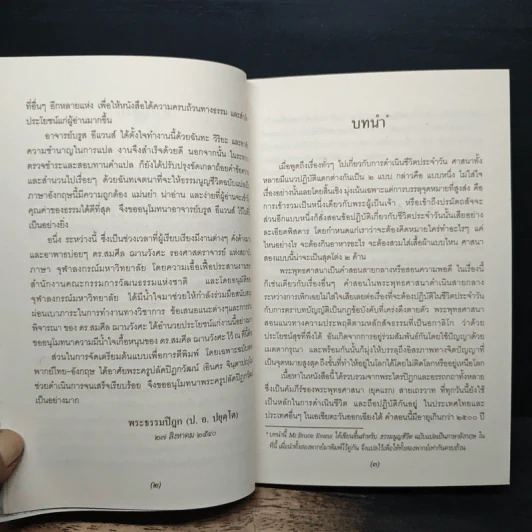 ที่อื่นๆ อีกหลายแห่ง เพื่อให้หนังสือได้ความครบถ้วนทางธรรม และ
ประโยชน์แก่ผู้อ่านมากขึ้น
อาจารย์บรูส อีแวนส์ ได้ตั้งใจทำงานนี้ด้วยฉันทะ วิริยะ และ
ความชำนาญในการแปล งานจึงสำเร็จด้วยดี นอกจากนั้น ในระหว่าง
ตรวจชำระและสอบทานคำแปล ก็ยังได้ปรับปรุงขัดเกลาถ้อยคำ
และสำนวนไปเรื่อยๆ ด้วยฉันทเจตนาที่จะให้ธรรมนูญชีวิต
ภาษาอังกฤษนี้มีความถูกต้อง แม่นยำ น่าอ่าน และง่ายที่ผู้อ่านจะเข้า
คุณค่าของธรรมได้ดีที่สุด จึงขออนุโมทนาอาจารย์บรูส อีแวนส์ ไว้ใน
เป็นอย่างยิ่ง
อนึ่ง ระหว่างนี้ ซึ่งเป็นช่วงเวลาที่ผู้เรียบเรียงมีงานต่างๆ คั่งค้าง
และอาพาธบ่อยๆ ดร.สมศีล ฌานวังศะ รองศาสตราจารย์ แห่งสถาบัน
ภาษา จุฬาลงกรณ์มหาวิทยาลัย โดยความเอื้อเฟื้อประสาน
สำนักงานคณะกรรมการวัฒนธรรมแห่งชาติ และโดยอนุมัติของ
จุฬาลงกรณ์มหาวิทยาลัย ได้มีน้ำใจมาช่วยให้กำลังร่วมมือสนับสนุน
ผ่อนเบาภาระในการทำงานทางวิชาการ ข้อเสนอแนะต่างๆและการ
พิจารณา ของ ดร.สมศีล ฌานวังศะ ได้อำนวยประโยชน์แก่งานนี้อย่างมาก
ขออนุโมทนาความมีน้ำใจเกื้อหนุนของ ดร.สมศีล ฌานวังศะ ไว้ ณ ที่นี้
ส่วนในการจัดเตรียมต้นแบบเพื่อการตีพิมพ์ โดยเฉพาะฉบับ
พากย์ไทย-อังกฤษ ได้อาศัยพระครูปลัดปิฎกวัฒน์ (อินศร
ช่วยดำเนินการจนเสร็จเรียบร้อย จึงขออนุโมทนาพระครูปลัดปิฎกวัฒน์
เป็นอย่างมาก
พระธรรมปิฎก (ป. อ. ปยุตฺโต)
๒๗ สิงหาคม ๒๕๔๐
(๒)
บทนำ*
เมื่อพูดถึงเรื่องทั่วๆ ไปเกี่ยวกับการดำเนินชีวิตประจำวัน ศาสนาทั้ง
หลายมีแนวปฏิบัติแตกต่างกันเป็น ๒ แบบ กล่าวคือ แบบหนึ่ง ไม่ใส่ใจ
เรื่องอย่างนั้นเลยโดยสิ้นเชิง มุ่งเน้นเฉพาะแต่การบรรลุจุดหมายที่สูงส่ง คือ
การเข้ารวมเป็นหนึ่งเดียวกับพระผู้เป็นเจ้า หรือเข้าถึงปรมัตถสัจจะ
ส่วนอีกแบบหนึ่งก็สั่งสอนข้อปฏิบัติเกี่ยวกับชีวิตประจำวันนั้นเสียอย่าง
ละเอียดพิสดาร โดยกำหนดแก่เราว่าจะต้องคิดหมายใคร่ทำอะไรๆ แค่
ไหนอย่างไร จะต้องกินอาหารอะไร จะต้องสวมใส่เสื้อผ้าแบบไหน ศาสนา
สองแบบนี้น่าจะเป็นสุดโต่ง ๒ ด้าน
พระพุทธศาสนาเป็นคำสอนสายกลางหรือสอนความพอดี ในเรื่องนี้
ก็เช่นเดียวกับเรื่องอื่นๆ คำสอนในพระพุทธศาสนาดำเนินสายกลาง
ระหว่างการเพิกเฉยไม่ใส่ใจเสียเลยต่อเรื่องที่จะต้องปฏิบัติในชีวิตประจำวัน
กับการตราบทบัญญัติเป็นกฎข้อบังคับที่เคร่งตึงตายตัว พระพุทธศาสนา
สอนแนวทางความประพฤติตามหลักสัจธรรมที่เป็นอกาลิโก ว่าด้วย
ประโยชน์สุขที่พึงได้ อันเกิดจากการอยู่ร่วมสัมพันธ์กันโดยใช้ปัญญาด้วย
เมตตากรุณา และพร้อมกันนั้นก็มุ่งให้บรรลุถึงอิสรภาพทางจิตปัญญาที่
เป็นจุดหมายสูงสุด ถึงขั้นที่ทำให้อยู่ในโลกได้โดยไม่ติดโลกหรืออยู่เหนือโลก
เนื้อหาในหนังสือนี้ ได้รวบรวมจากพระไตรปิฎกและอรรถกถาทั้งหลาย
ซึ่งเป็นคัมภีร์ของพระพุทธศาสนา (ยุคแรก) สายเถรวาท ที่ทุกวันนี้ยังใช้
เป็นหลักในการดำเนินชีวิต และถือปฏิบัติกันอยู่ ในประเทศไทยและ
ประเทศอื่นๆ ในเอเชียตะวันออกเฉียงใต้ คำสอนนี้มีอายุเกินกว่า ๒๕๐๐ ปี
* บทนำนี้ Mr.Bruce Evans ได้เขียนขึ้นสำหรับ ธรรมนูญชีวิต ฉบับแปลเป็นภาษาอังกฤษ ใน
ที่นี้ เมื่อนำทั้งสองพากย์มาพิมพ์ไว้คู่กัน จึงแปลไว้เพื่อให้ทั้งสองพากย์เท่ากันครบถ้วน
(๓)